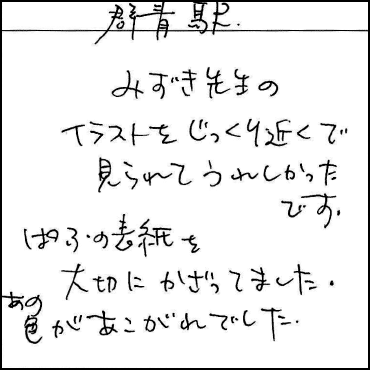 群青駅.
みずき先生の
イラストをじっくり近くで
見られてうれしかった
です.
ぱふの表紙を
大切にかざってました.
あの
色があこがれでした.